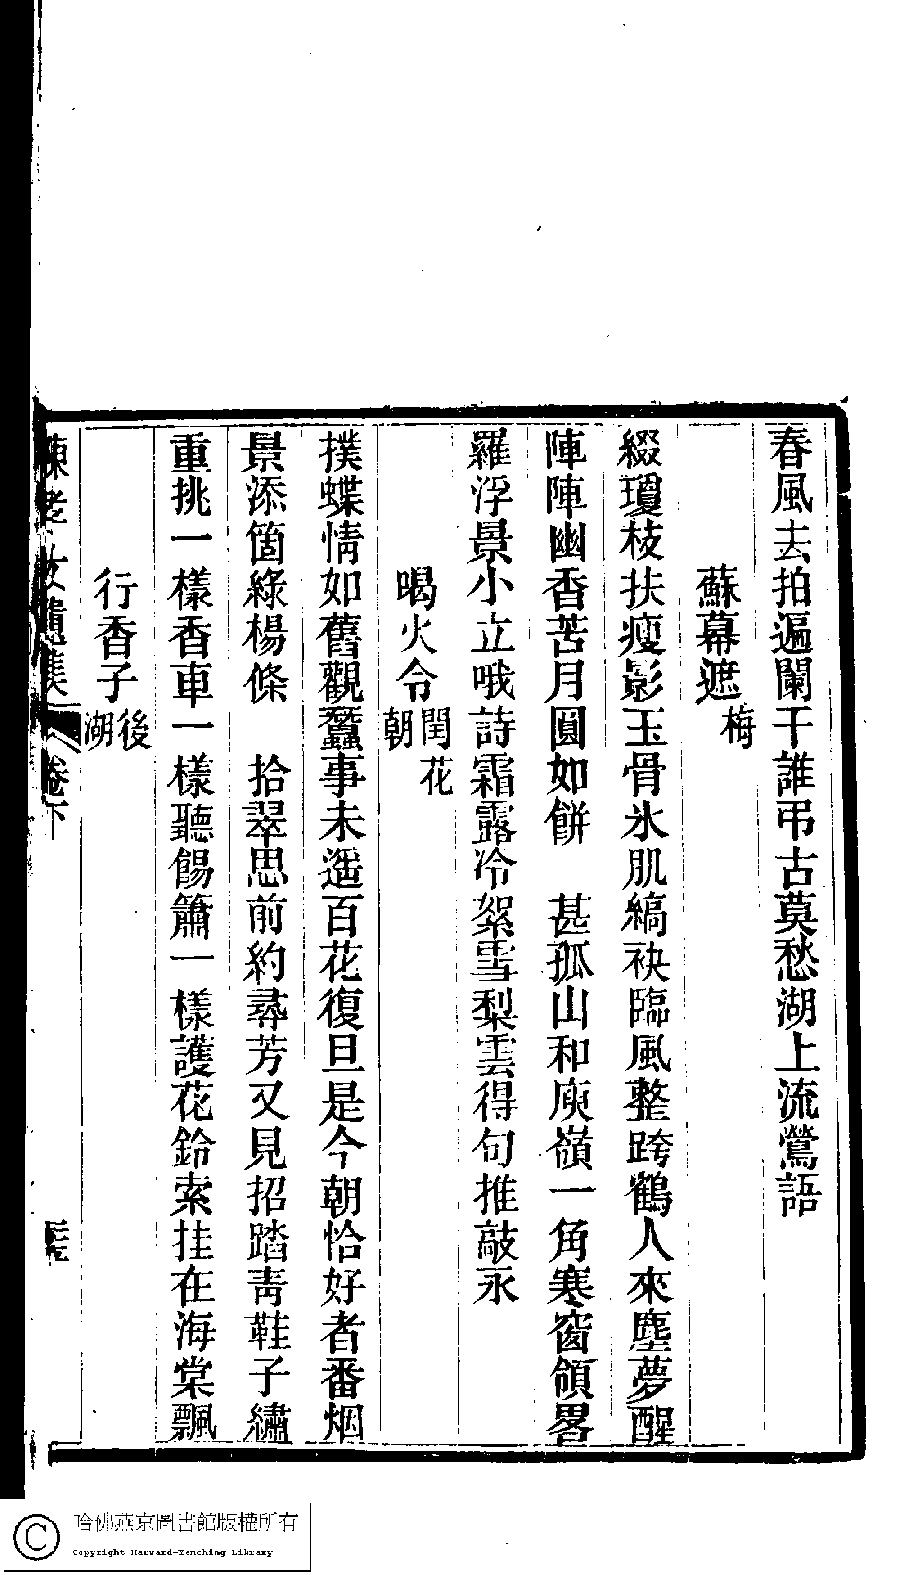 春風去拍遍闌干誰弔古莫愁湖上流鶯語
蘇幕遮梅
綴瓊枝扶瘦影玉骨氷肌縞袂臨風整跨鶴人來塵夢醒
陣陣幽香苦月圓如餅　甚孤山和庾嶺一角寒窗領畧
羅浮景小立哦詩霜露冷絮雪梨雲得句推敲永
暍火令閏花朝
撲蝶情如舊觀蠶事未遥百花復旦是今朝恰好者番烟
景添箇綠楊條　拾翠思前約尋芳又見招踏靑鞋子繡
重挑一樣香車一樣聽餳簫一樣護花鈴索挂在海棠飄
行香子後湖
卷下
哈佛燕京圖書館版權所有
Copyright Harvard-Yenching Library